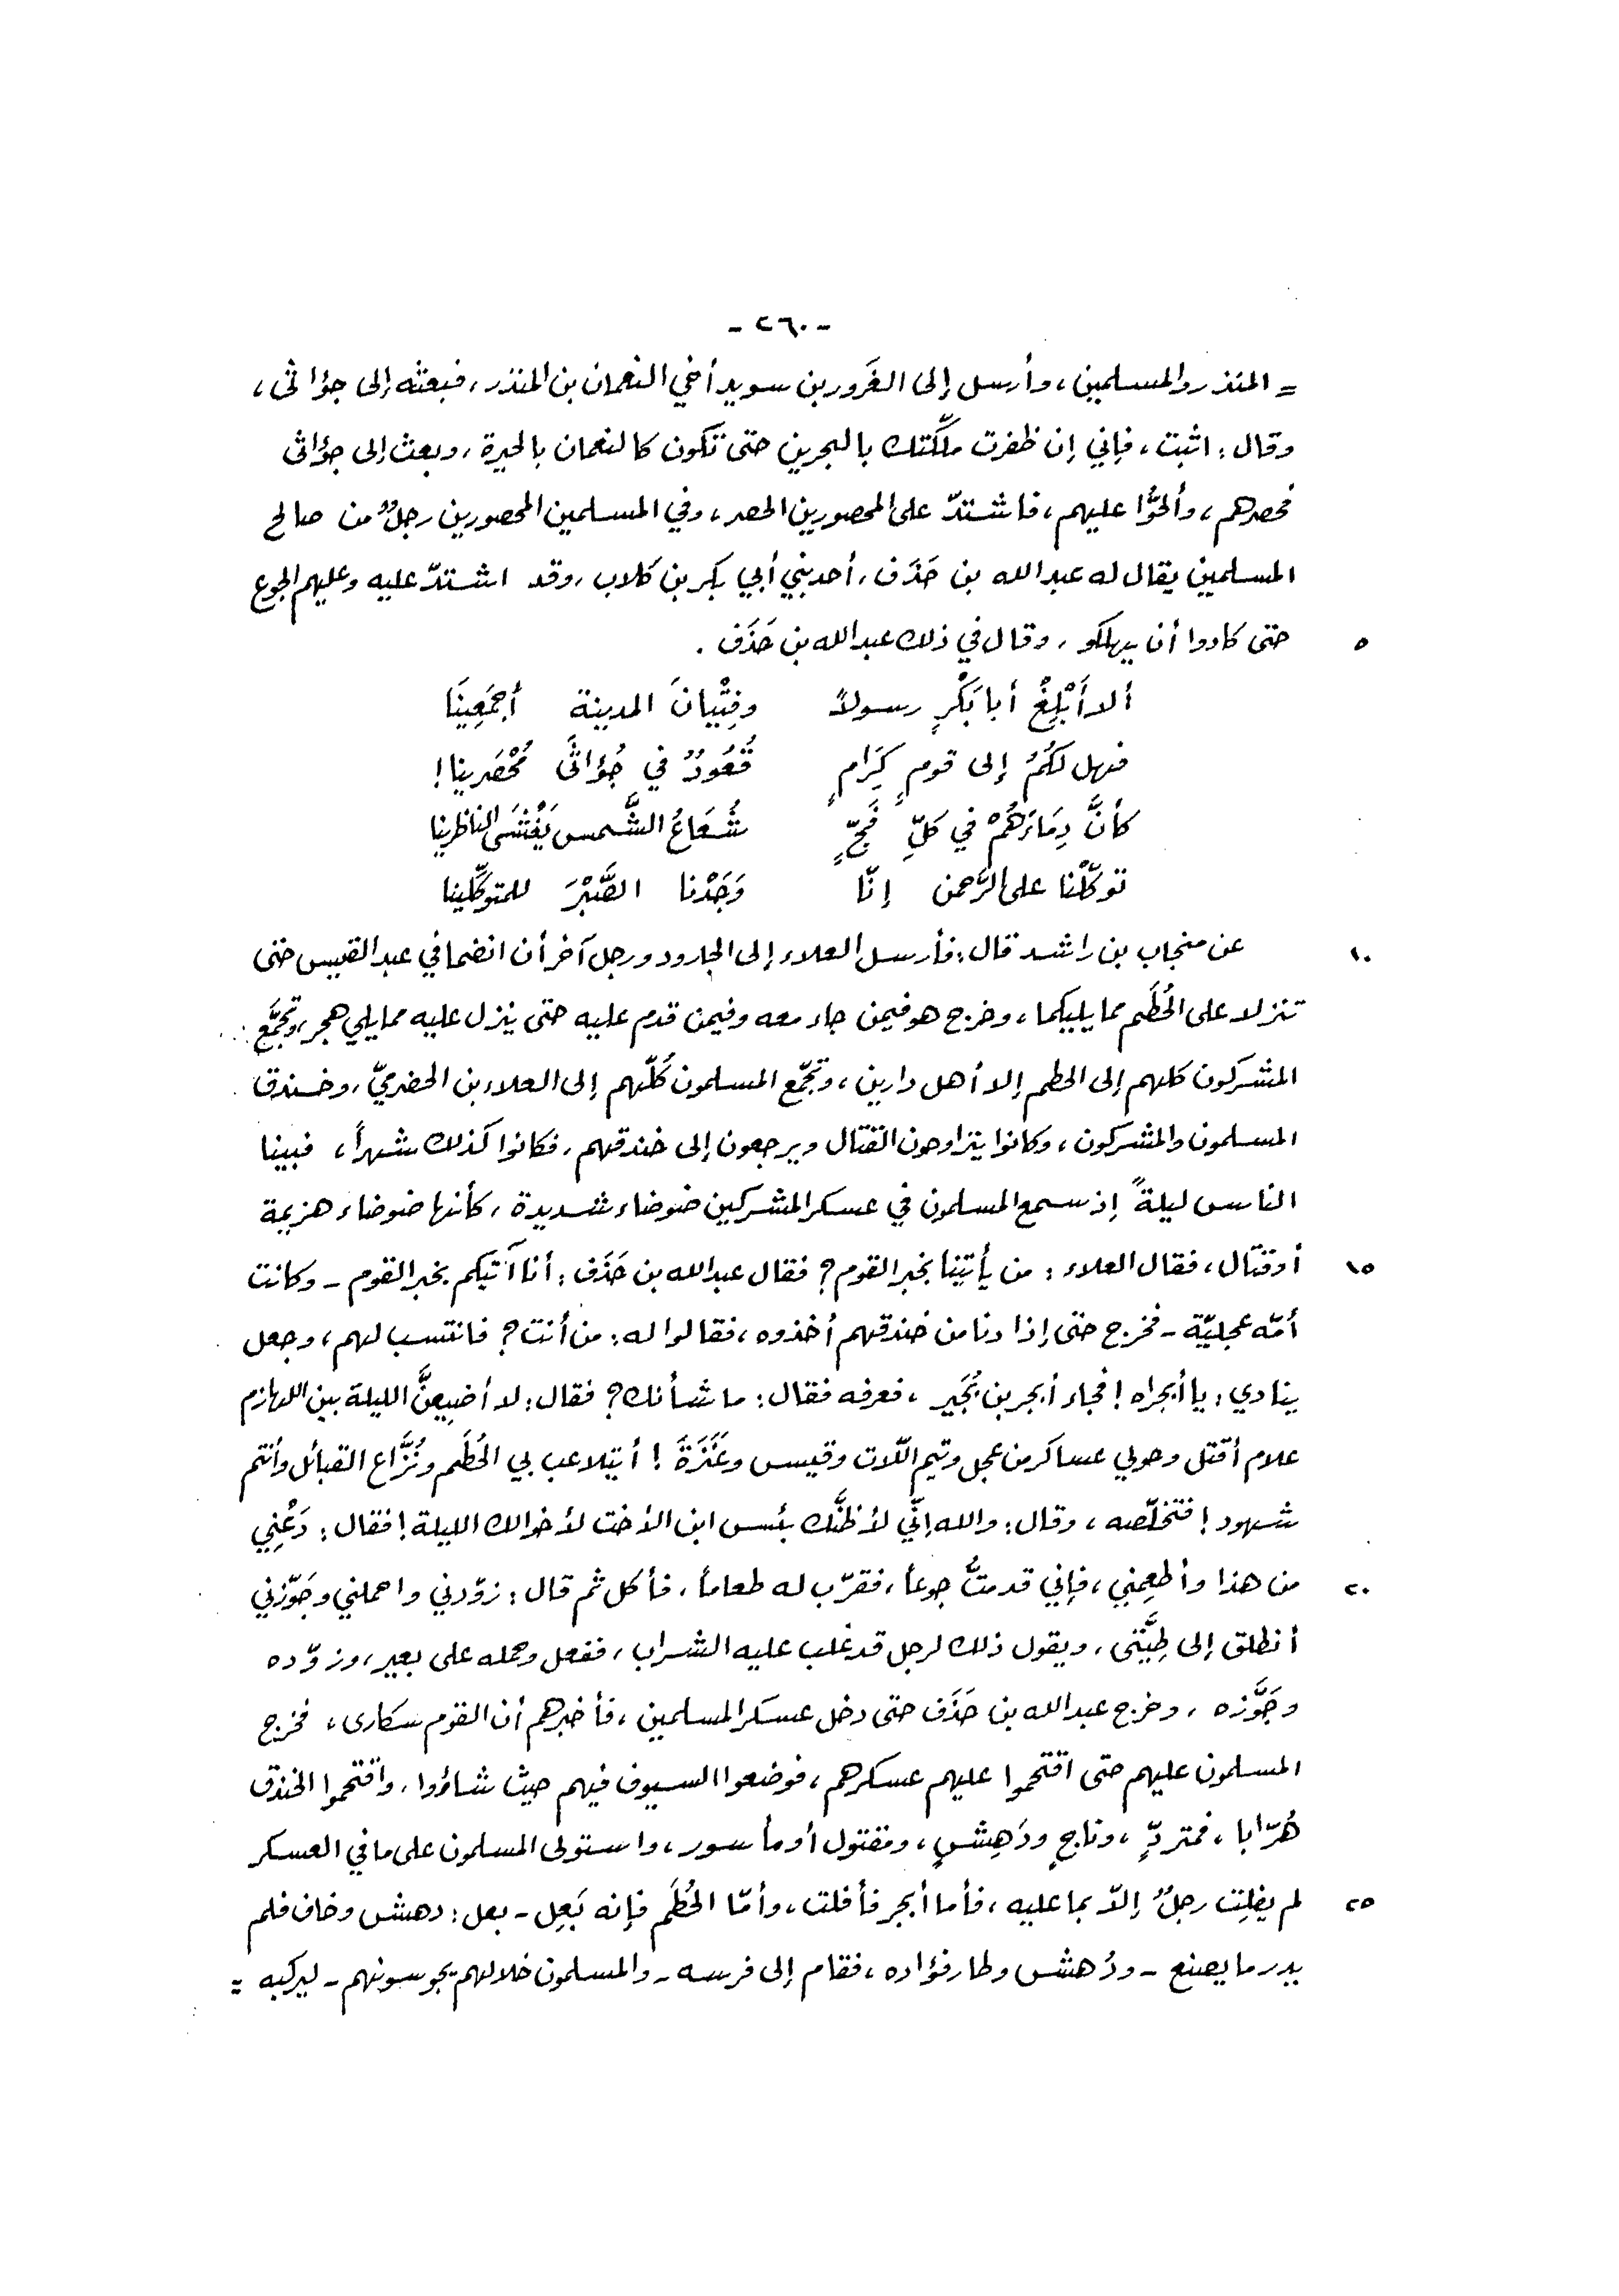 - ٢٦٠ -
= المنذر والمسلمين، وأرسل إلى الغَرور بن سويد أخي النعمان بن المنذر، فبعثه إلى جؤاثى،
وقال: اثبت، فإني إن ظفرت ملّكتك بالبحرين حتى تكون كالنعمان بالحيرة، وبعث إلى جؤاثى
فحصرهم، وألحُّوا عليهم، فاشتدّ على المحصورين الحصر، وفي المسلمين المحصورين رجلٌ من صالح
المسلمين يقال له عبد الله بن حَذَف، أحد بني أبي بكر بن كلاب، وقد اشتدّ عليه وعليهم الجوع
٥ حتى كادوا أن يهلكو، وقال في ذلك عبد الله بن حَذَف.
ألا أَبْلِغْ أبا بَكْرٍ رسولاً وفِتْيانَ المدينة أجمَعِينَا
فهل لكُمُ إلى قومٍ كِرَامٍ قُعُودٌ في جُؤاثَى مُحْصَرينا!
كأنَّ دِمَاءَهُمْ في كلِّ فَجّ ٍ شُعَاعُ الشَّمس يَغْشَى الناظرينا
توكّلْنا على الرَّحمن إنّا وَجَدْنا الصَّبْرَ للمتوكِّلينا
١٠ عن منجاب بن راشد قال: فأرسل العلاء إلى الجارود ورجل آخر أن انضما في عبد القيس حتى
تنزلا على الحُطَم مما يليكما، وخرج هو فيمن جاء معه وفيمن قدم عليه حتى ينزل عليه مما يلي هجر، وتجمَّع
المشركون كلهم إلى الحطم إلا أهل دارين، وتجمّع المسلمون كُلّهم إلى العلاء بن الحضرميّ، وخندق
المسلمون والمشركون، وكانوا يتراوحون القتال ويرجعون إلى خندقهم، فكانوا كذلك شهراً، فبينا
الناس ليلةً إذ سمع المسلمون في عسكر المشركين ضوضاء شديدة، كأنها ضوضاء هزيمة
١٥ أو قتال، فقال العلاء: من يأتينا بخبر القوم؟ فقال عبد الله بن حَذَف: أنا آتيكم بخبر القوم - وكانت
أمّه عجليّة - فخرج حتى إذا دنا من خندقهم أخذوه، فقالوا له: من أنت؟ فانتسب لهم، وجعل
ينادي: يا أبجراه! فجاء أبجر بن بُجَير، فعرفه فقال: ما شأنك؟ فقال: لا أضيعنَّ الليلة بين اللهازم
علام أقتل وحولي عساكر من عجل وتيم اللّات وقيس وعَنَزَةَ! أيتلاعب بي الحُطَم ونُزَّاع القبائل وأنتم
شهود! فتخلّصه، وقال: والله إنّي لأظنَّك بئس ابن الأخت لأخوالك الليلة! فقال: دَعْنِي
٢٠ من هذا وأطعِمني، فإني قد متُّ جوعاً، فقرّب له طعاماً، فأكل ثم قال: زوّدني واحملني وجَوّزني
أنطلق إلى طِيَّتى، ويقول ذلك لرجل قد غلب عليه الشراب، ففعل وحمله على بعير، وزوّده
وجَوَّزه، وخرج عبد الله بن حَذَف حتى دخل عسكر المسلمين، فأخبرهم أن القوم سكارى، فخرج
المسلمون عليهم حتى اقتحموا عليهم عسكرهم، فوضعوا السيوف فيهم حيث شاؤوا، واقتحموا الخندق
هُرّابا، فمتردٍّ، وناجٍ ودَهِشٍ، ومقتول أو مأسور، واستولى المسلمون على ما في العسكر
٢٥ لم يفلِت رجلٌ إلاّ بما عليه، فأما أبجر فأفلت، وأمّا الحُطَم فإنه بَعِل - بعل: دهش وخاف فلم
يدر ما يصنع - ودُهش وطار فؤاده، فقام إلى فرسه - والمسلمون خلالهم يجوسونهم - ليركبه =